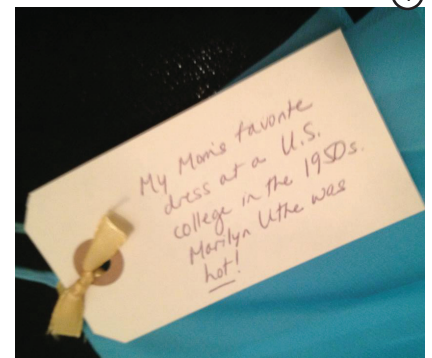 My Mom's favorite
dress at a U.S.
college in the 1950s.
Marilyn Uthe was
hot!